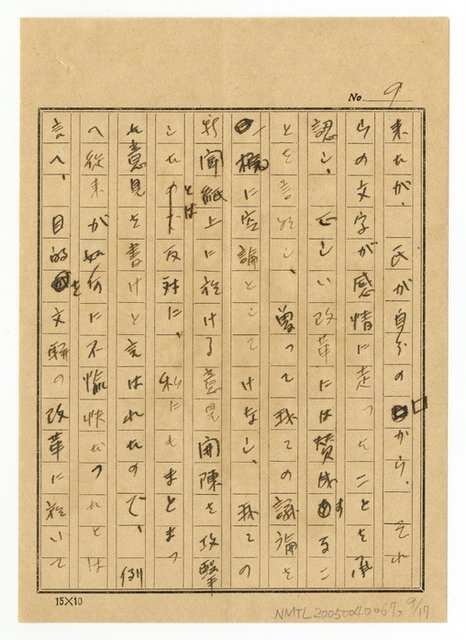 No. 9
来たが、氏が自分の□から、それ
らの文字が感情に走つたことを承
認し、正しい改革には賛成するこ
とを言明し、曽つて我々の議論を
一概に空論としてけなし、我々の
新聞紙上に於ける意見開陳を攻撃
したのとは反対に、私にもまとまつ
た意見を書けと言はれたので、例
へ従来が如何に不愉快だつたとは
言へ、目的を文聯の改革に於いて
15×10
NMTL20050040067, 9/17